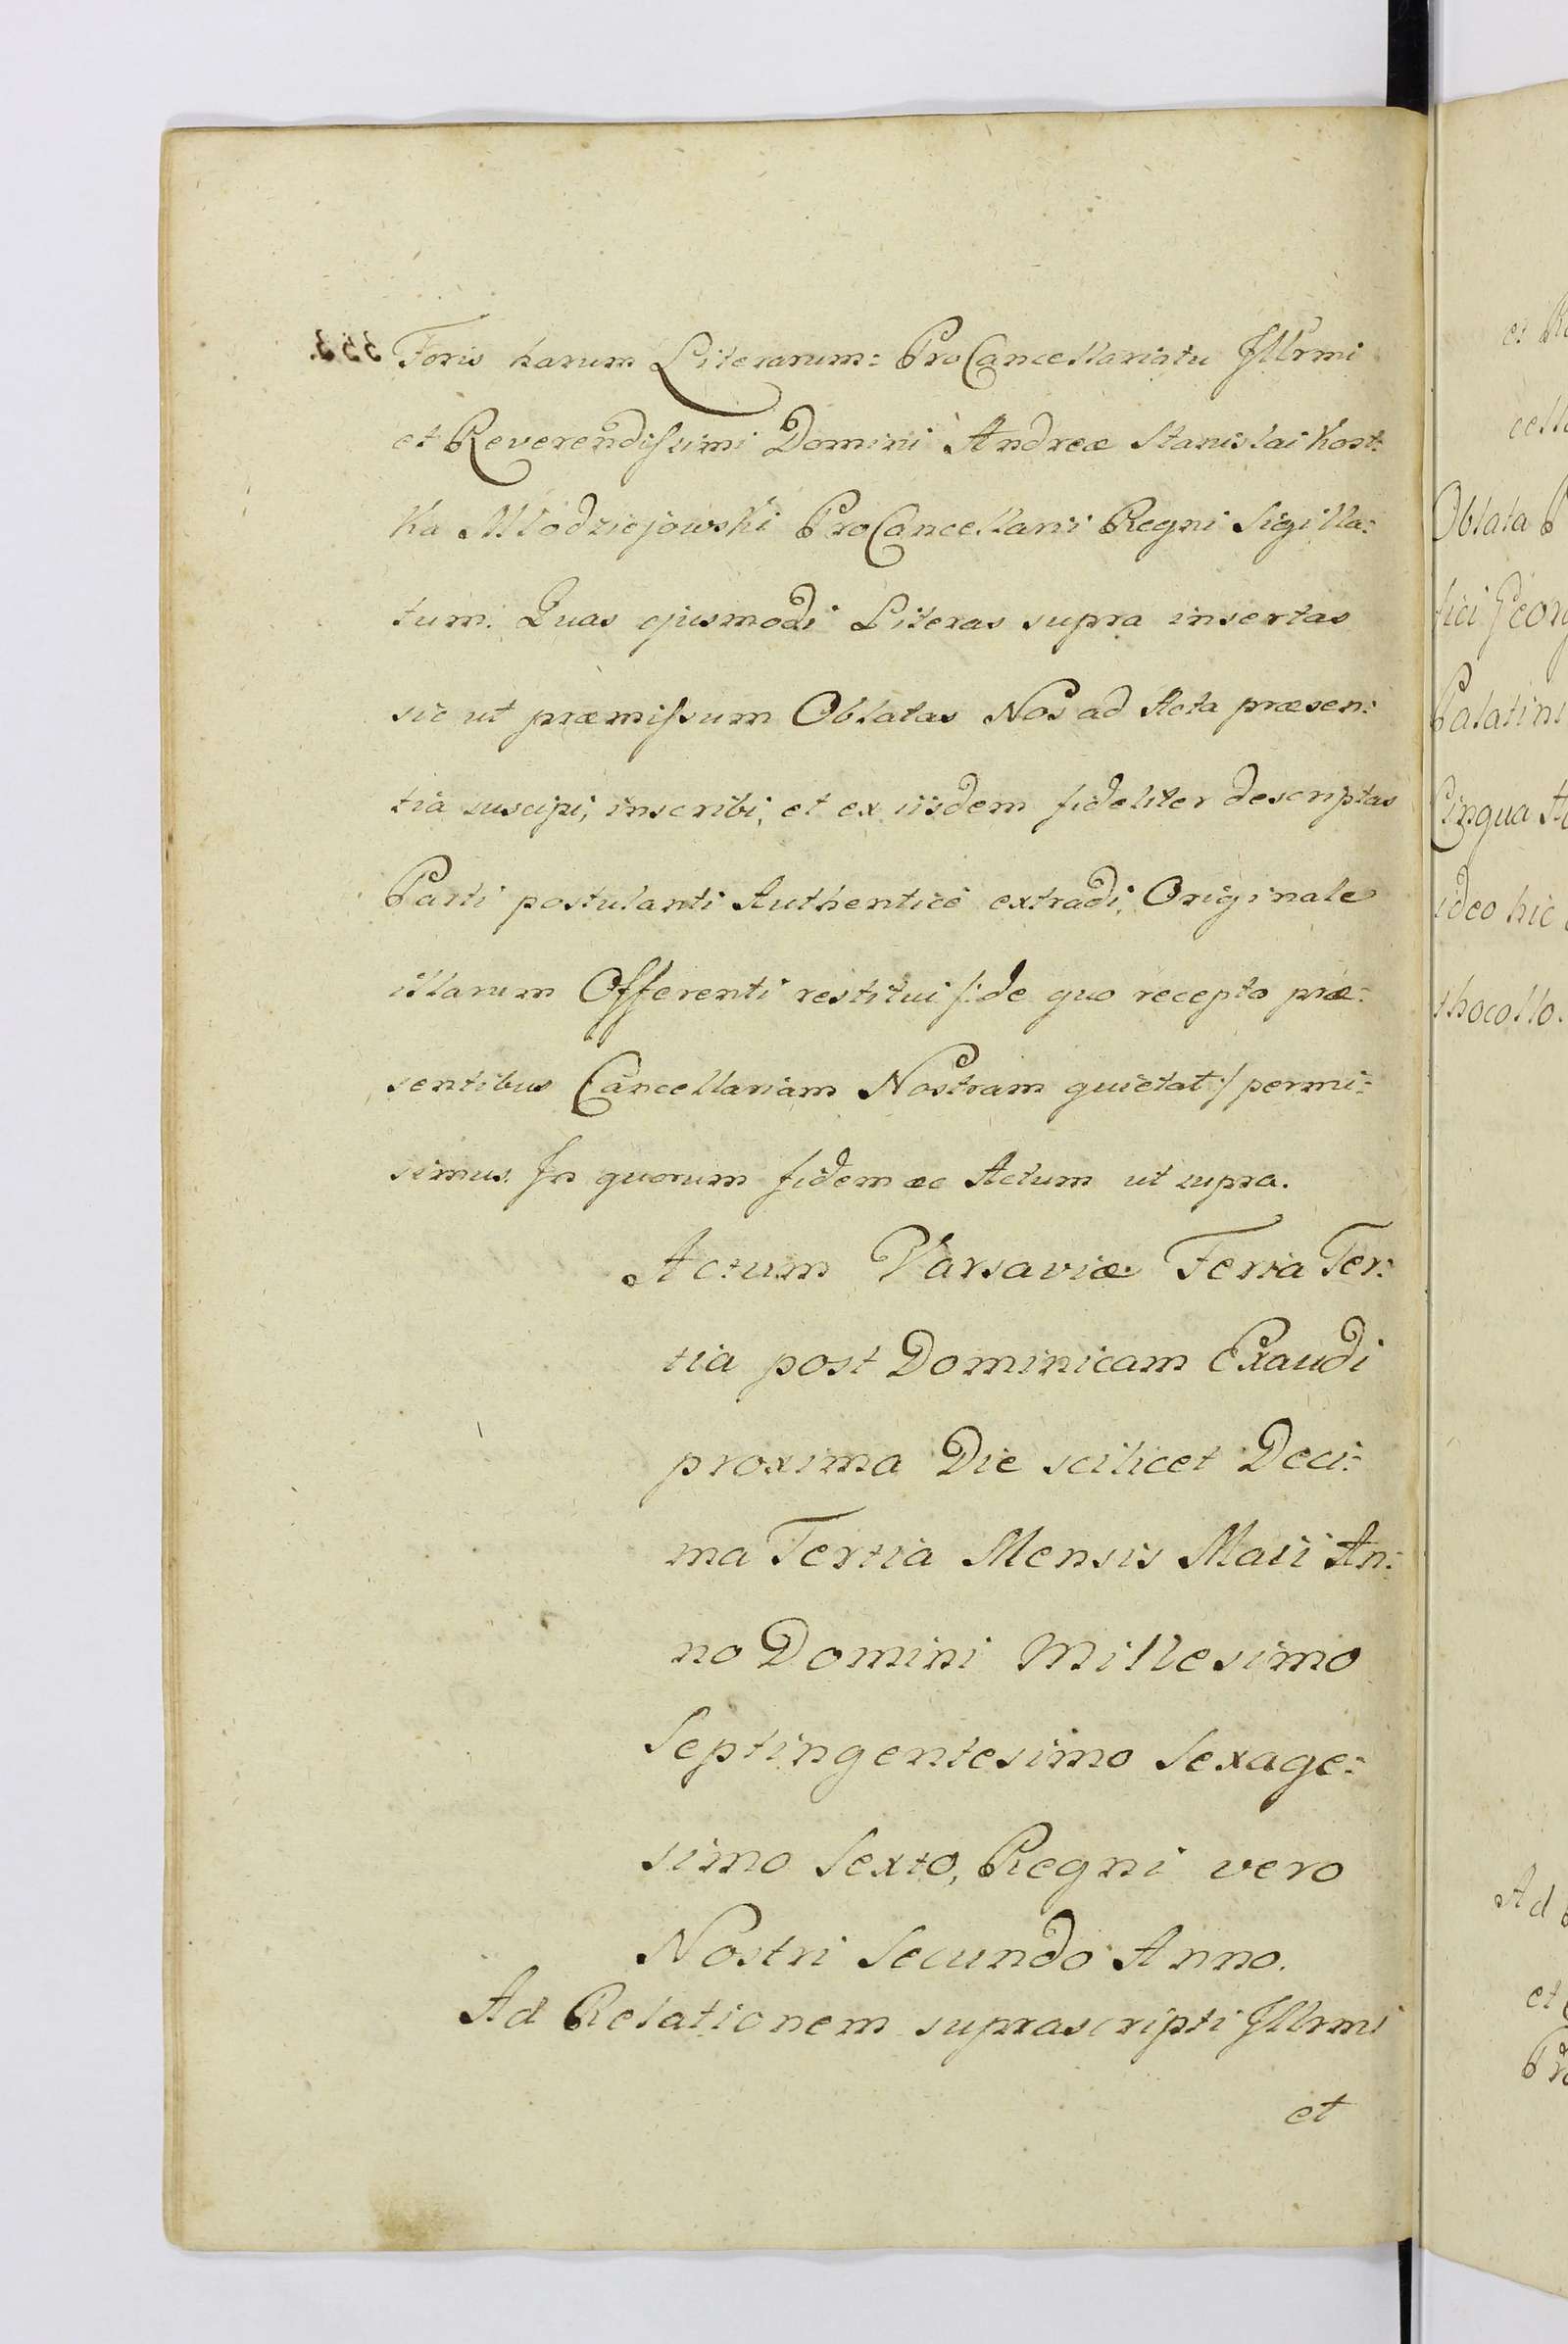 Foris harum Literarum: ProCancellariatu Jllrmi
et Reverendissimi Domini Andreæ Stanislai Kost:
ka Młodziejowski ProCancellarii Regni Sigilla:
tum. Quas ejusmodi Literas supra insertas
sic ut præmissum Oblatas Nos ad Acta præsen:
tia suscipi, inscribi, et ex iisdem fideliter descriptas
Parti postulanti Authenticè extradi, Originale
illarum Offerenti restitui /: de quo recepto præ:
sentibus Cancellariam Nostram quietat :/ permi:
simus. Jn quorum fidem ac Actum ut supra.
Actum Varsaviæ Feria Ter:
tia post Dominicam Exaudi
proxima Die scilicet Deci:
ma Tertia Mensis Maii An:
no Domini Millesimo
Septingentesimo Sexage:
simo Sexto, Regni vero
Nostri Secundo Anno.
Ad Relationem suprascripti Jllrmi
et
et
cella
Oblata
fici Georg
Palatini
Lingua
ideo hic
thocollo.
Ad
et